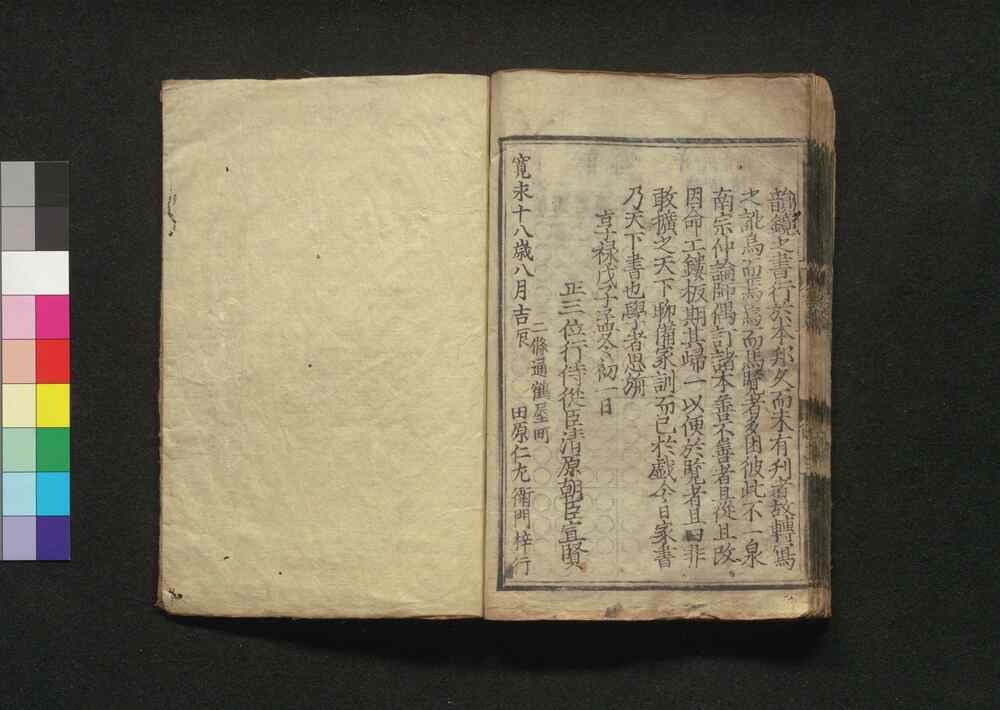 韻鏡之書行於本邦久而未有刋者故轉寫
之訛烏而焉焉而馬覽者多困彼此不一泉
南宗仲論師偶訂諸本善不善者且從且改
因命工鏤板期其歸一以便於覽者且曰非
敢擴之天下聊備家訓而已於戲今日家書
乃天下書也學者思旃
享祿戊子孟冬初一日
正三位行侍從臣清原朝臣宣賢
寬永十八歲八月吉辰
二條通鶴屋町
田原仁左衛門梓行